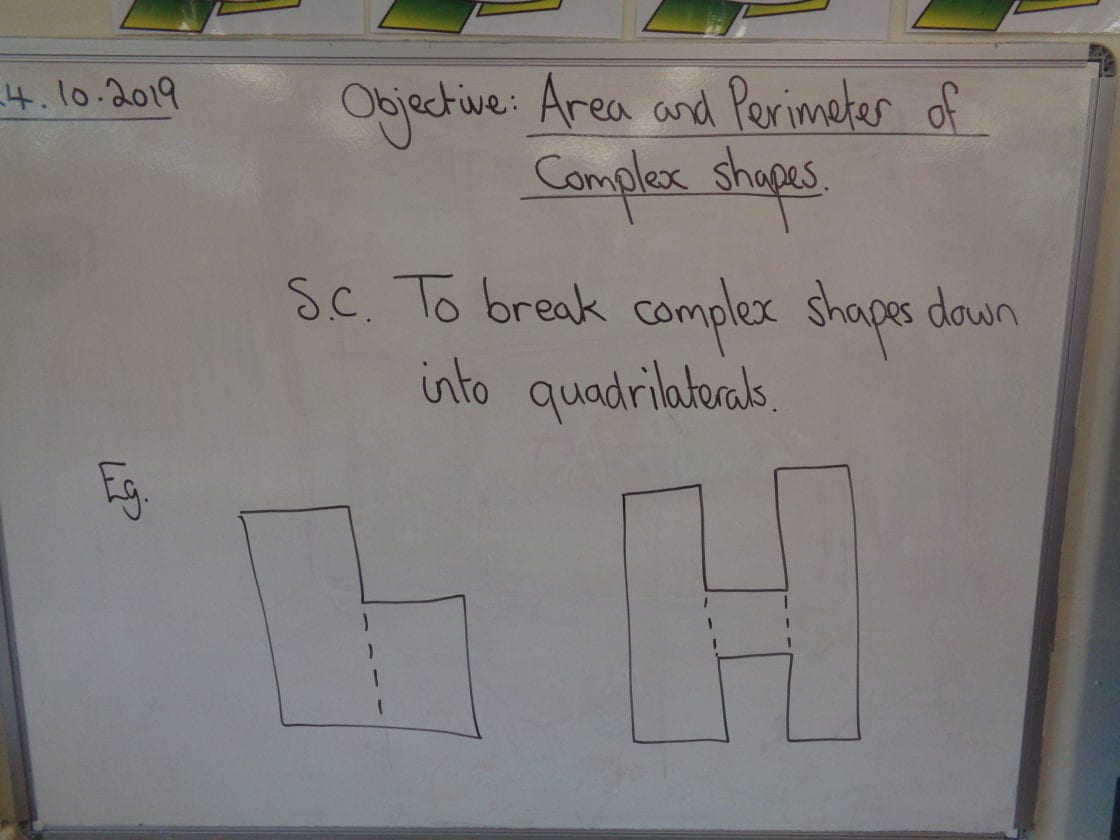 4.10.2019
Objective: Area and Perimeter of
Complex shapes.
S.C. To break complex shapes down
into quadrilaterals.
Eg.